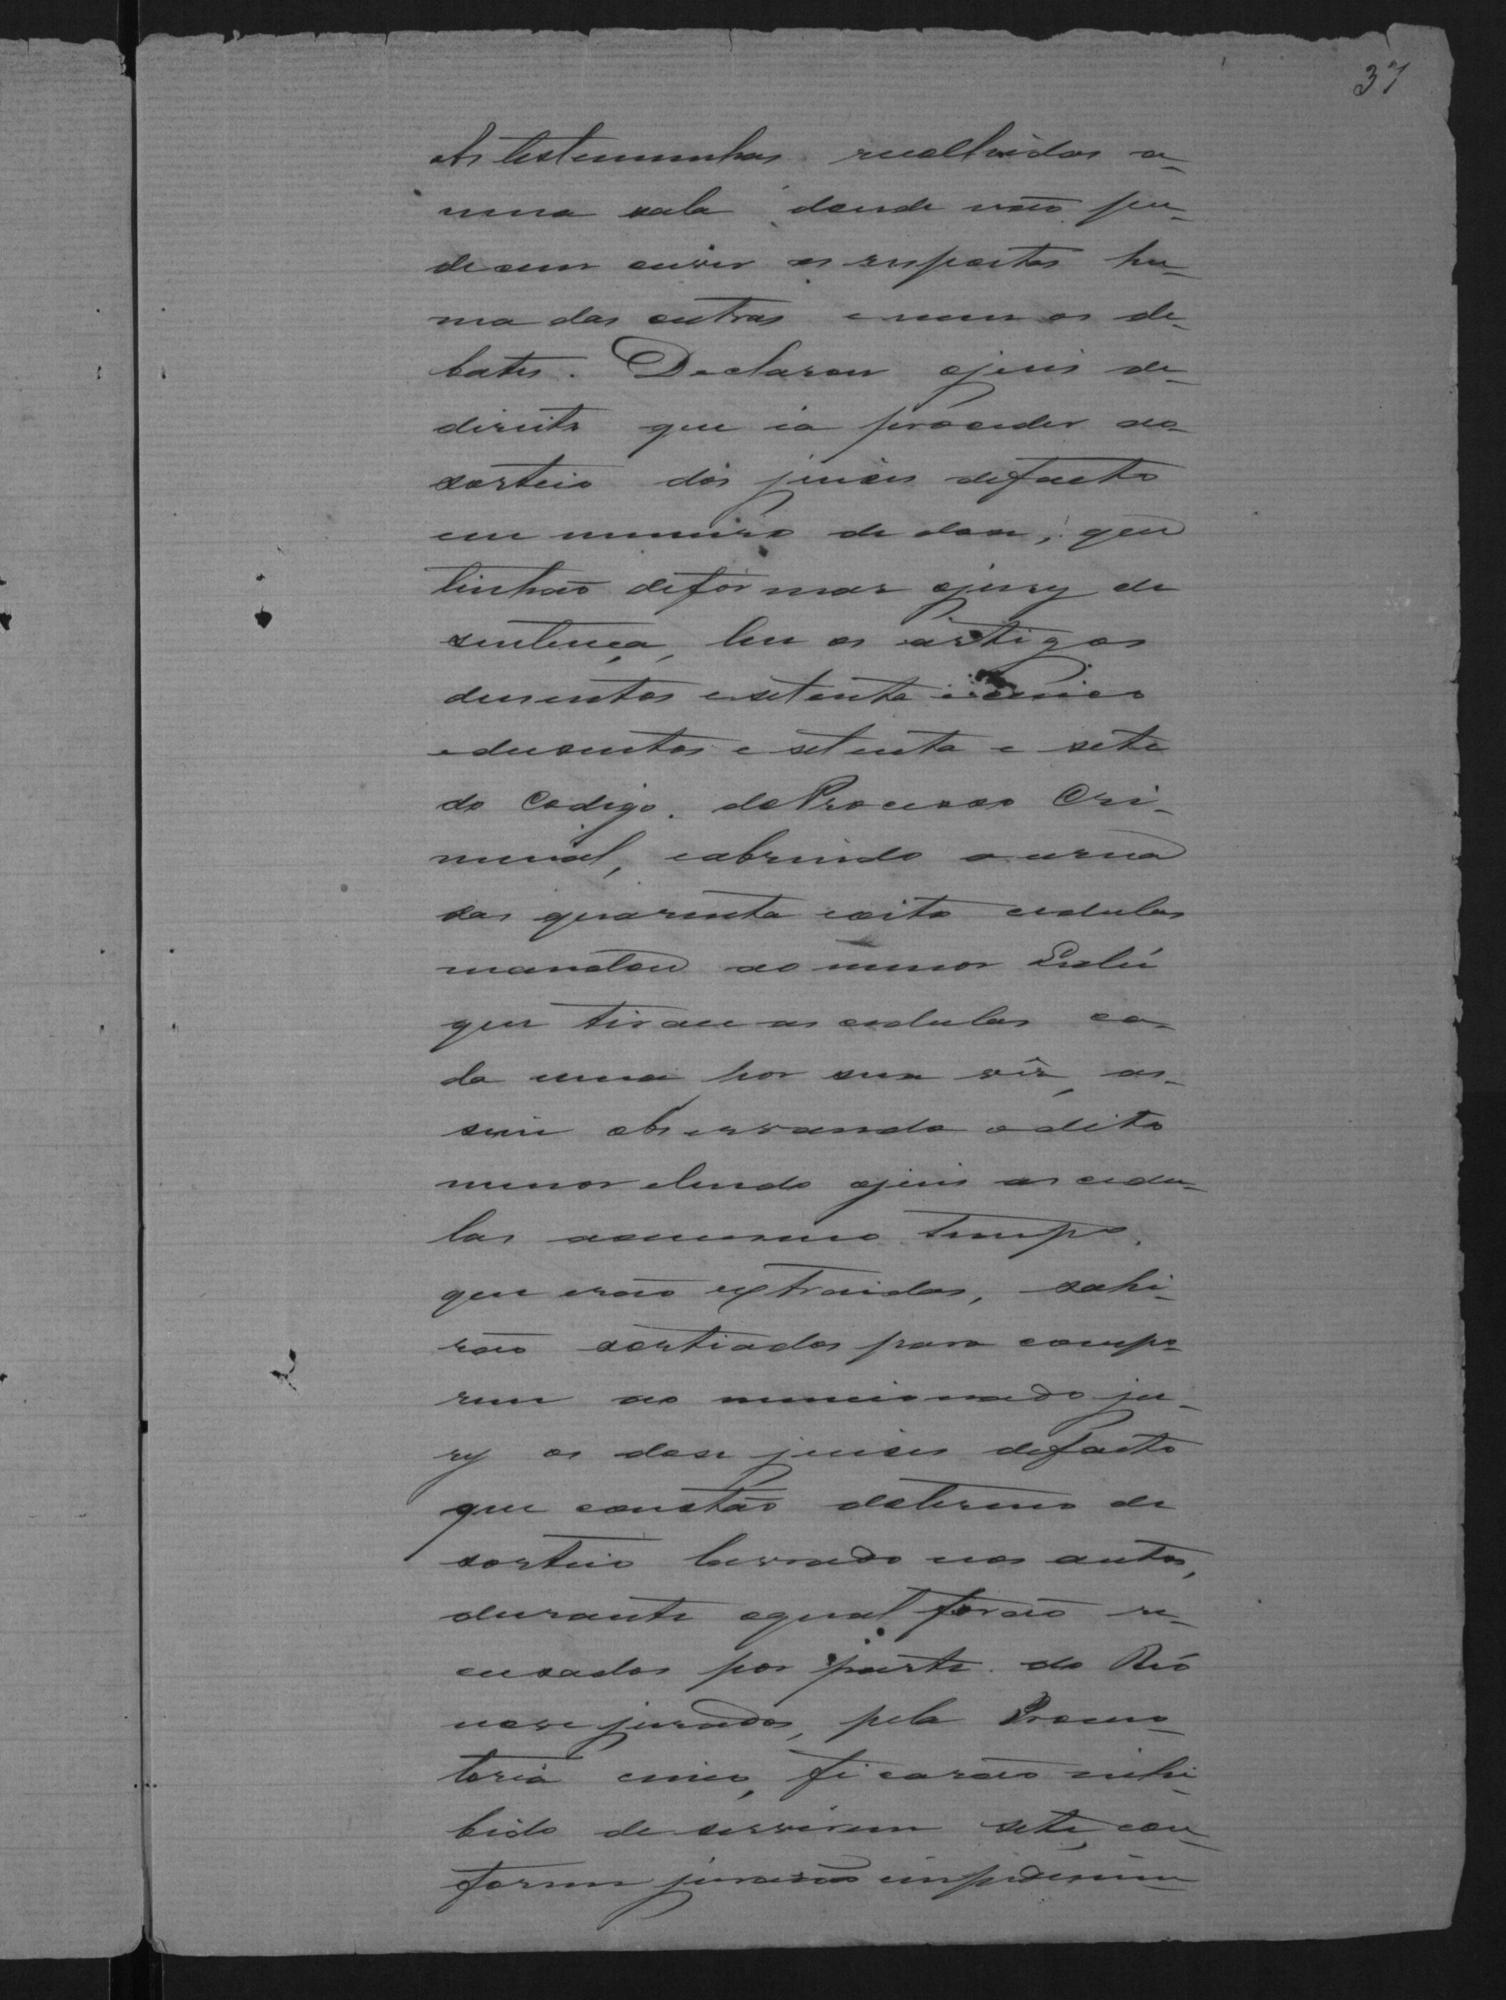 37
As testemunhas recolhidas a
uma sala donde não pu-
decem ouvir as respostas hu-
ma das outras e nem os de-
bates. Declarou ojuis de
direito que ia proceder ao
sorteio dos juises defacto
em numero de dose, que
tinhão deformar ojury de
sentença, leu os artigos
dusentos esetenta e cinco
edusentos e setenta e sete
do Codigo do Processo Cri-
minal, eabrindo a urna
das quarenta eoito cedulas
mandou ao menor
que tirace as cedulas ca-
da uma por sua vês, as-
sim observando o dito
menor elendo ojuis as cedu-
las aomesmo tempo
que erão extraidas, sahi-
rão sortiados para compo
rem ao mencionado ju-
ry os dose juises defacto
que constão dotermo de
sorteio lavrado nos autos,
durante oqual forão re-
cusados por parte do Réo
nove jurados, pela Promo-
toria cinco, ficarão inhi-
bido de servirem sete, con-
forme